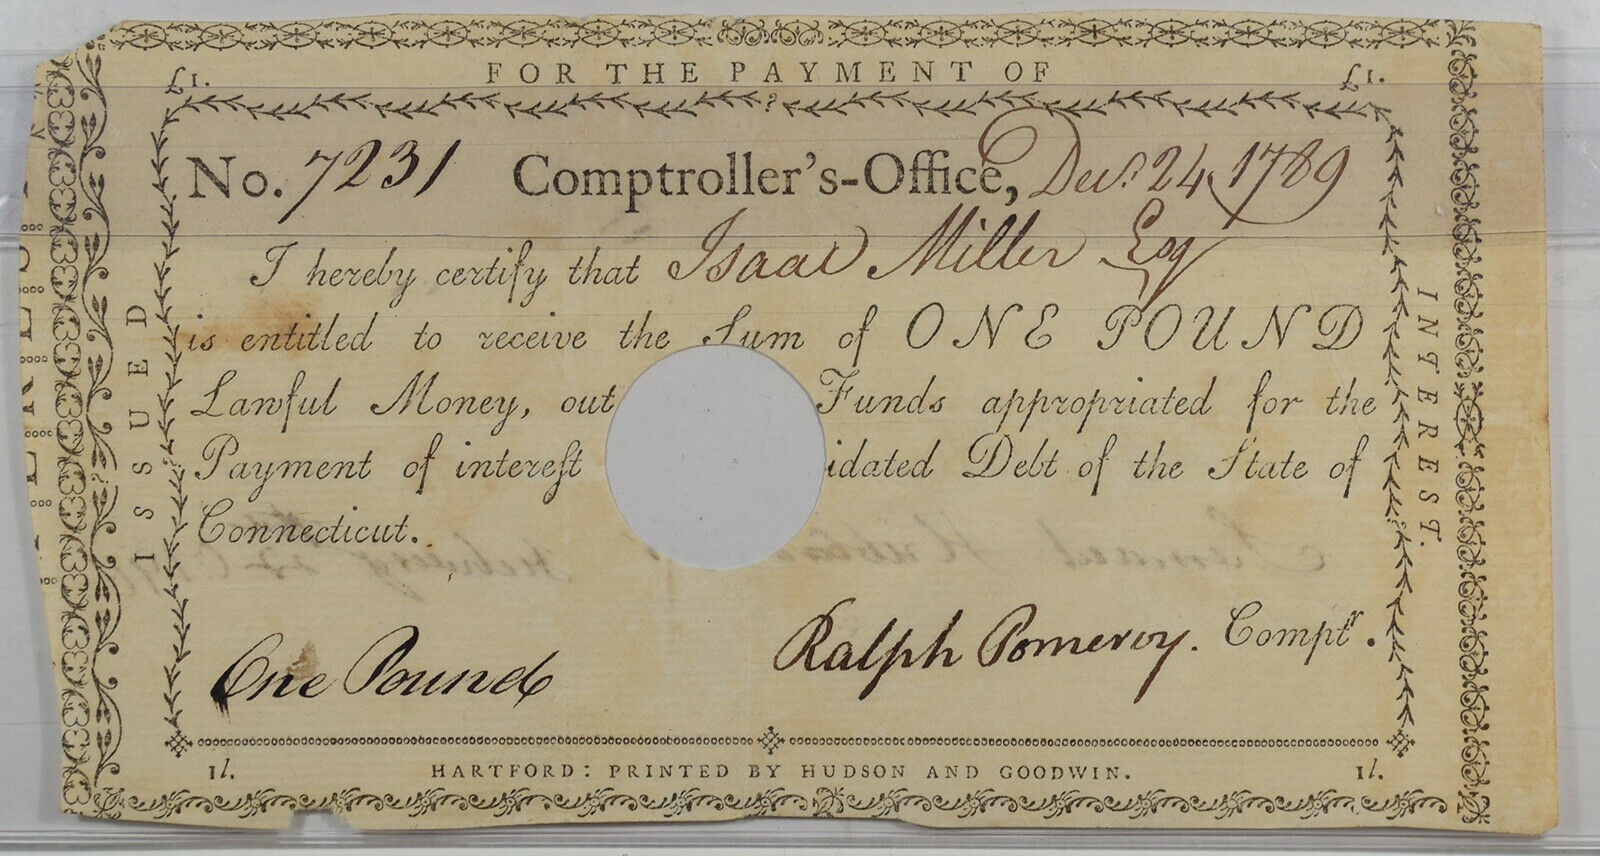 FOR THE PAYMENT OF
£1. £1.
No. 7231 Comptroller's-Office, Decr. 24, 1789
I hereby certify that Isaac Miller Esq
is entitled to receive the Sum of ONE POUND
Lawful Money, out Funds appropriated for the
Payment of interest idated Debt of the State of
Connecticut.
One Pound
Ralph Pomeroy. Comptr.
1l. HARTFORD: PRINTED BY HUDSON AND GOODWIN. 1l.
ISSUED
INTEREST.